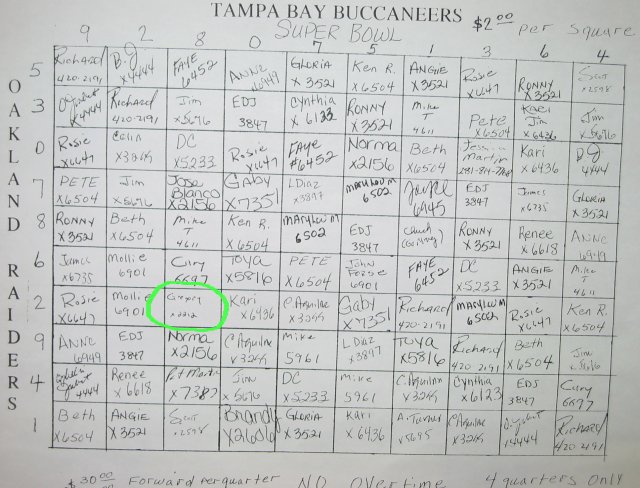 TAMPA BAY BUCCANEERS $2.00 per Square
SUPER BOWL
9 2 8 0 7 5 1 3 6 4
OAKLAND RAIDERS
5 Richard B.J FAYE ANNE GLORIA Ken R. ANGIE Rosie RONNY
420-2191 x4444 6452 x6949 x3521 x6504 x3521 x6647 x3521 x2598
3 Richard Jim EDJ Cynthia RONNY Mike Pete Kari Jim Jim
x4444 420-2191 x5676 3847 x6123 x3521 T 4611 x6504 x6436 x5676
0 Rosie Celia DC Rosie FAye Norma Beth Jessica Martin Kari DJ
x6647 x3244 x5233 x6647 #6452 x2156 x6504 x6436 4444
7 PETE Jim Jose Blanco Gaby L Diaz MARYLOU M EDJ James GLORIA
x6504 x5676 x2156 x7351 x3897 6502 6945 3847 x6735 x3521
8 RONNY Beth Mike Ken R. MARYLOU M EDJ Chuck RONNY Renee ANNE
x3521 x6504 T 4611 x6504 6502 3847 x3521 x6618 6949
6 James Mollie Cury Toya PETE John FAYE DC ANGIE Mike
x6735 6901 6697 x5816 x6504 6901 6452 x5233 x3521 T 4611
2 Rosie Mollie Gregory Kari C. Aguilar Gaby Richard MARYLOU M Rosie Ken R.
x6647 6901 x2212 x6436 x3244 x7351 420-2191 6502 x6647 x6504
9 ANNE EDJ Norma C. Aguilar Mike L DIAZ Toya Richard Beth Jim
6949 3847 x2156 x3244 5961 x3897 x5816 420 2191 x6504 x5676
4 Renee Pat Martin Jim DC Mike C. Aguilar Cynthia EDJ Cury
4444 x6618 x7387 5676 x5233 5961 x3244 x6123 3847 6697
1 Beth ANGIE Brandy GLORIA Kari A. Turner C. Aguilar Richard
x6504 x3521 x2598 x2606 x3521 x6436 x5695 x3244 x4444 420-2191
$30.00 Forward per quarter NO Overtime 4 quarters Only